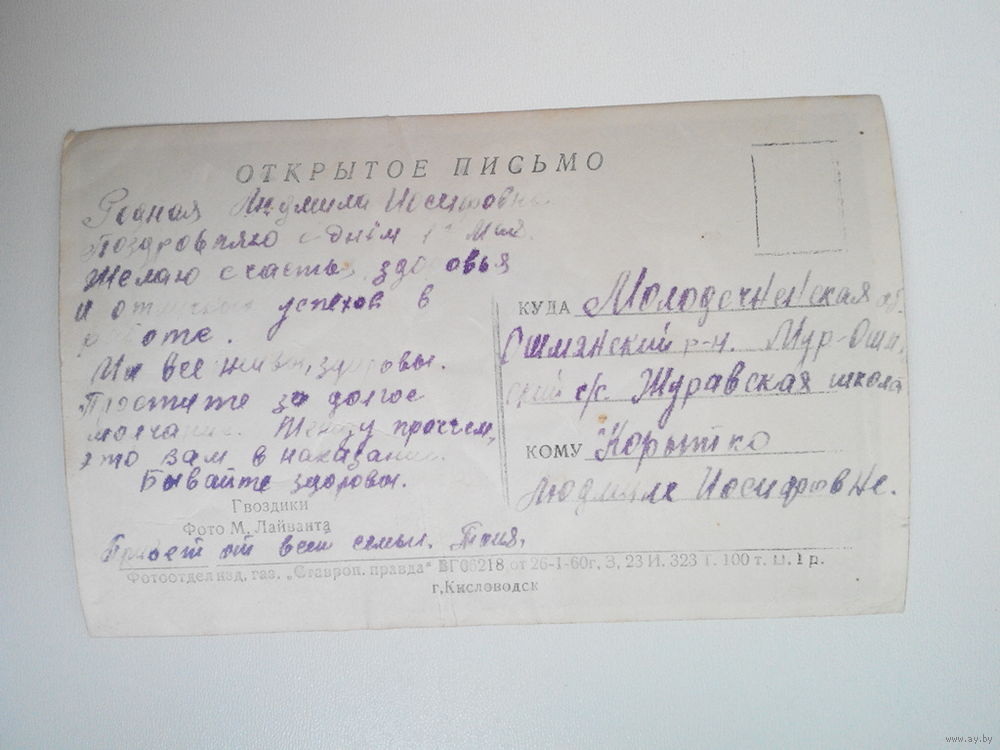 ОТКРЫТОЕ ПИСЬМО
Родная Людмила Иосифовна
Поздровляю с днём 1го Мая.
Желаю счастья, здоровья
и отличных успехов в
работе.
Мы все живы, здоровы.
Простите за долгое
молчание. Между прочем,
это вам в наказание.
Бывайте здоровы.
Гвоздики
Фото М. Лайванта
Привет от всей семьи. Таня.
КУДА Молодечненская об.
Ошмянский р-н. Мур-Ошм.
ский с/с. Журавская школа
КОМУ Корытко
Людмиле Иосифовне.
Фотоотдел изд. газ. „Ставроп. правда" ВГ06218 от 26-I-60г, З, 23 И. 323 Т. 100 т. Ц. 1 р.
г. Кисловодск
www.ay.by